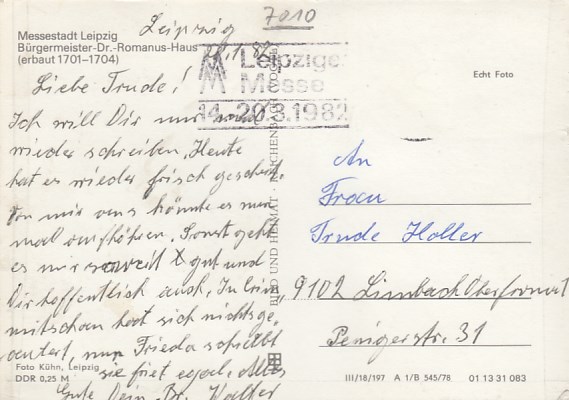 7010
Leipzig
Messestadt Leipzig
Bürgermeister-Dr.-Romanus-Haus
(erbaut 1701–1704)
Leipziger
Messe
14.-20.3.1982
Echt Foto
Liebe Trude!
Ich will Dir nur mal
wieder schreiben. Heute
hat es wieder frisch geschneit.
Von mir aus könnte es nun
mal aufhören. Sonst geht
es mir soweit gut und
Dir hoffentlich auch. In Crim
mitschau hat sich nichts ge
ändert, nur Frieda schreibt
sie friert egal. Alles
Gute Dein Br. Walter
BILD UND HEIMAT · REICHENBACH (VOGTL)
An
Frau
Trude Holler
9102 Limbach Oberfrohna 1
Penigerstr. 31
Foto Kühn, Leipzig
DDR 0,25 M
III/18/197 A 1/B 545/78 01 13 31 083